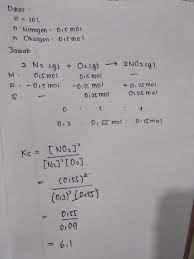 Diket :
V = 10 L
n Nitrogen = 0,5 mol
n Oksigen = 0,5 mol
Jawab :
2 N₂ (g) + O₂ (g) → 2NO₂ (g)
M : 0,5 mol 0,5 mol —
R : -0,5 mol -0,25 mol + 0,25 mol
S : — 0,25 mol 0,25 mol
0 : 1 : 1
0,3 : 0,55 mol : 0,55 mol
Kc = [NO₂]²
[N₂]² [O₂]
= (0,55)²
(0,3)² (0,55)
= 0,55
0,09
= 6,1